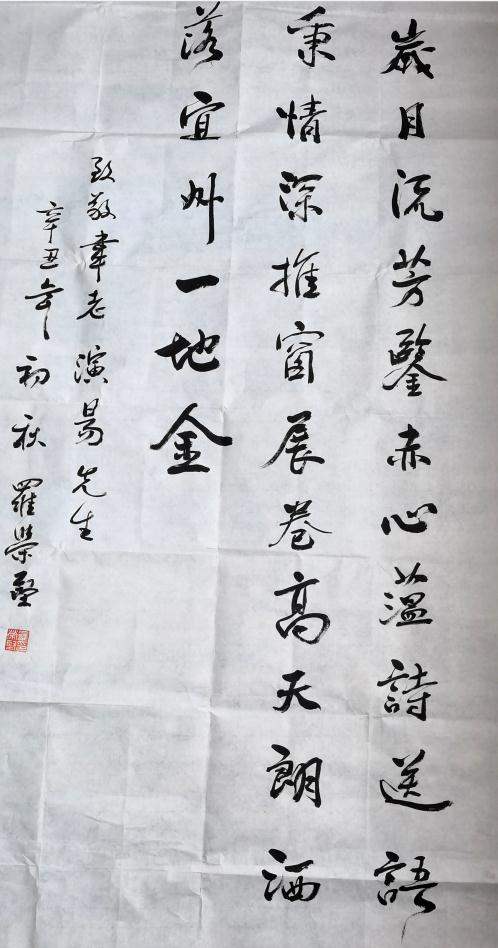 歲月流芳鑒赤心蕰詩送語
秉情深推窗展卷高天朗洒
落宜州一地金
致敬韋老 演易先生
辛丑年初秋 羅榮堅